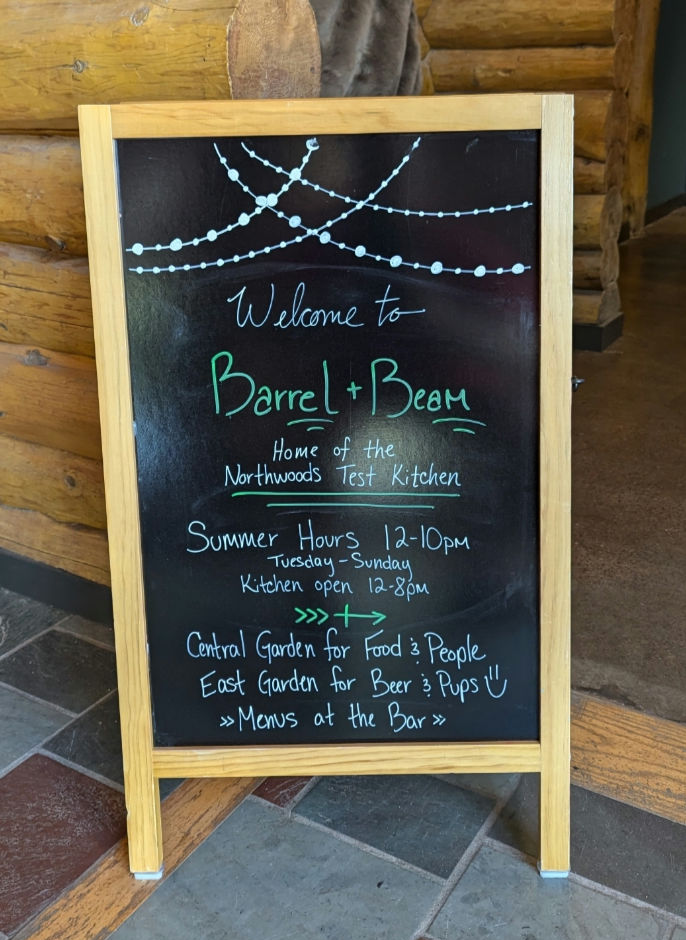 Welcome to
Barrel + Beam
Home of the
Northwoods Test Kitchen
Summer Hours 12-10pm
Tuesday - Sunday
Kitchen open 12-8pm
Central Garden for Food & People
East Garden for Beer & Pups
» Menus at the Bar »